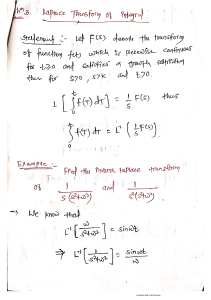 Laplace Transform of Integral
Statement :- Let F(s) denote the transform
of function f(t) which is piecewise continuous
for t≥0 and satisfies a growth
then for s>0, s>k and t>0.
L[∫₀ᵗ f(τ) dτ] = 1/s F(s) thus
∫₀ᵗ f(τ) dτ = L⁻¹ {1/s F(s)}
Example :- Find the inverse Laplace transform
of 1/s(s²+ω²) and 1/s²(s²+ω²)
→ We know that
L⁻¹[ω/s²+ω²] = sinωt
⇒ L⁻¹[1/s²+ω²] = sinωt/ω